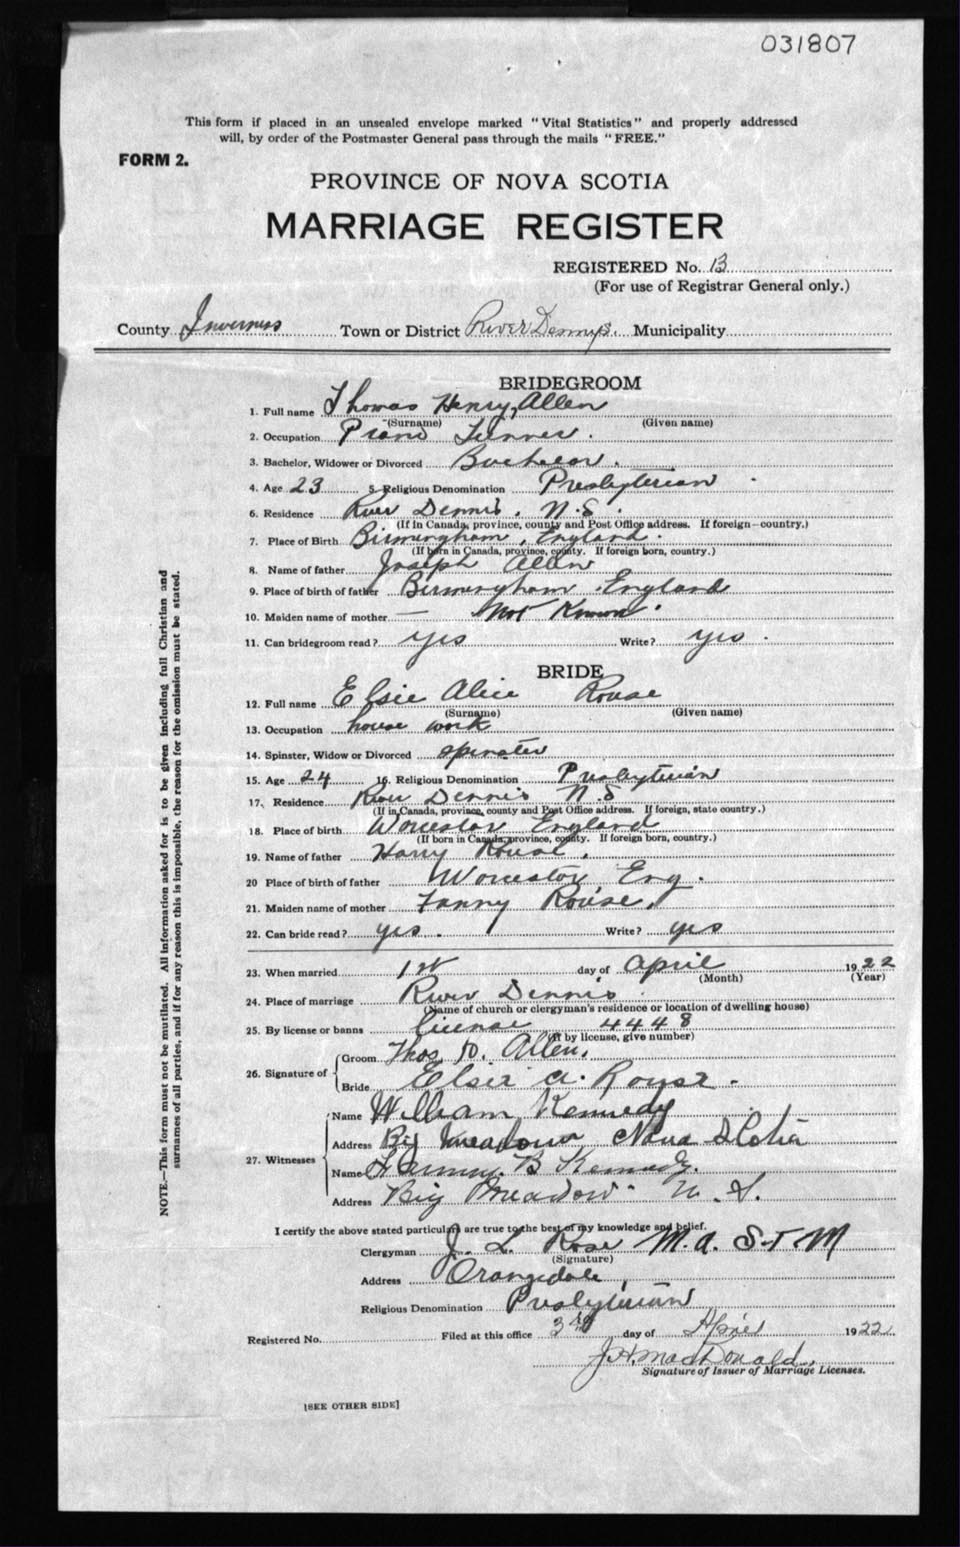 031807
This form if placed in an unsealed envelope marked "Vital Statistics" and properly addressed
will, by order of the Postmaster General pass through the mails "FREE."
FORM 2.
PROVINCE OF NOVA SCOTIA
MARRIAGE REGISTER
REGISTERED No. 13
(For use of Registrar General only.)
County Inverness Town or District River Dennys. Municipality
BRIDEGROOM
1. Full name Thomas Henry Allen
(Surname) (Given name)
2. Occupation Piano Tunner.
3. Bachelor, Widower or Divorced Bachelor.
4. Age 23 5. Religious Denomination Presbyterian
6. Residence River Dennis, N.S.
(If in Canada, province, county and Post Office address. If foreign—country.)
7. Place of Birth Birmingham, England.
(If born in Canada, province, county. If foreign born, country.)
8. Name of father Joseph Allen
9. Place of birth of father Birmingham England
10. Maiden name of mother — Not Known.
11. Can bridegroom read? yes Write? yes.
BRIDE
12. Full name Elsie Alice Rouse
(Surname) (Given name)
13. Occupation house work
14. Spinster, Widow or Divorced spinster
15. Age 24 16. Religious Denomination Presbyterian
17. Residence River Dennis N.S
(If in Canada, province, county and Post Office address. If foreign, state country.)
18. Place of birth Worcester England
(If born in Canada, province, county. If foreign born, country.)
19. Name of father Harry Rouse.
20 Place of birth of father Worcester, Eng.
21. Maiden name of mother Fanny Rouse,
22. Can bride read? yes. Write? yes
23. When married 1st day of April 1922
(Month) (Year)
24. Place of marriage River Dennis
(Name of church or clergyman's residence or location of dwelling house)
25. By license or banns license 4448
(If by license, give number)
26. Signature of Groom Thos H. Allen.
Bride Elsie A. Rouse.
27. Witnesses Name William Kennedy
Address Big Meadow Nova Scotia
Name B Kennedy.
Address Big Meadow N. S.
I certify the above stated particulars are true to the best of my knowledge and belief.
Clergyman J. L. Rose M.A. S.T.M
(Signature)
Address Orangedale,
Religious Denomination Presbyterian
Registered No. Filed at this office 3rd day of April 1922
J.H. MacDonald.
Signature of Issuer of Marriage Licenses.
[SEE OTHER SIDE]
NOTE.—This form must not be mutilated. All information asked for is to be given including full Christian and
surnames of all parties, and if for any reason this is impossible, the reason for the omission must be stated.